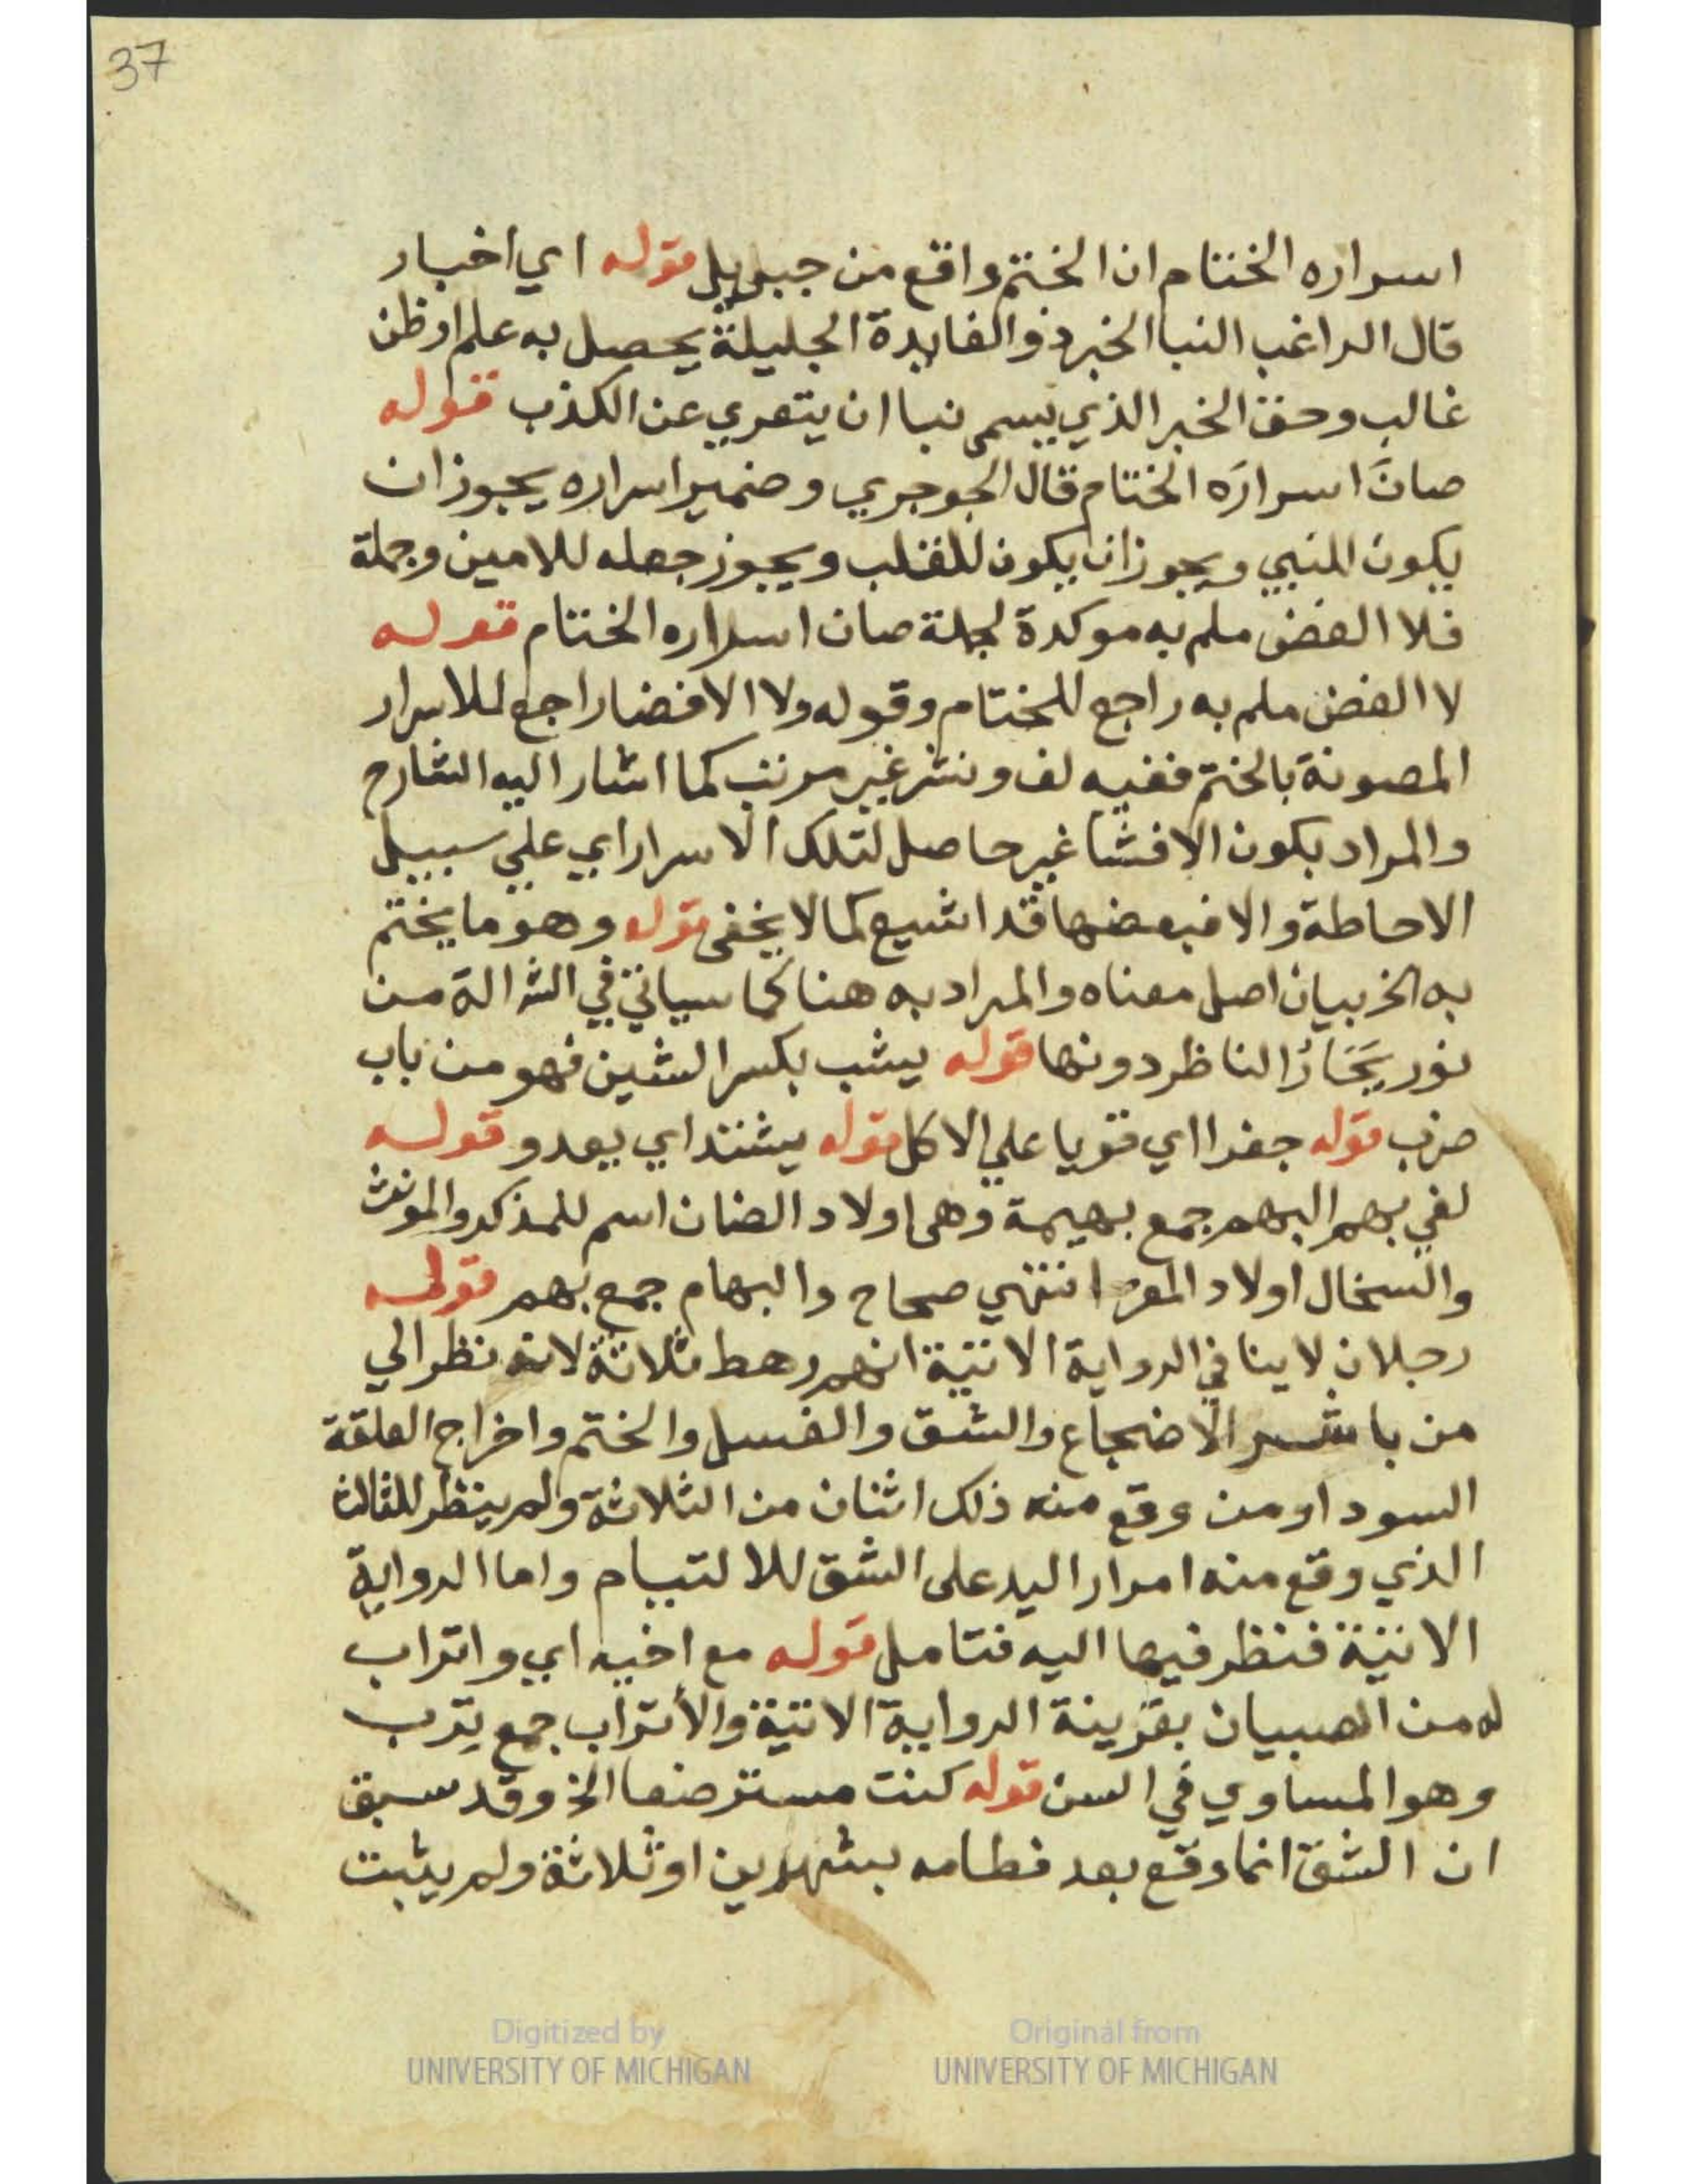 37
اسراره الختام ان الختم واقع من جبريل قوله اي اخبار
قال الراغب النبا الخبر ذو الفايدة الجليلة يحصل به علم او ظن
غالب وحق الخبر الذي يسمى نبا ان يتعري عن الكذب قوله
صانَ اسرارَه الختام قال الجوجري وضمير اسراره يجوز ان
يكون للنبي ويجوز ان يكون للقلب ويجوز جعله للامين وجملة
فلا الفض ملم به موكدة لجملة صان اسراره الختام قوله
لا الفض ملم به راجع للختام وقوله ولا الافضا راجع للاسرار
المصونة بالختم ففيه لف ونشر غير مرتب كما اشار اليه الشارح
والمراد بكون الافشا غير حاصل لتلك الاسرار اي علي سبيل
الاحاطة والا فبعضها قد اشيع كما لا يخفى قوله وهو ما يختم
به الخ بيان اصل معناه والمراد به هنا كما سياتي في الش الة من
نور يَحَارُ الناظر دونها قوله يشب بكسر الشين فهو من باب
ضرب قوله جفرا اي قويا علي الاكل قوله يشتد اي يعدو قوله
لفي بهم البهم جمع بهيمة وهى اولاد الضان اسم للمذكر والمونث
والسخال اولاد المعز انتهي صحاح والبهام جمع بهم قوله
رجلان لا ينافي الرواية الاتية انهم رهط ثلاثة لانه نظر الي
من باشر الاضجاع والشق والغسل والختم واخراج العلقة
السودا ومن وقع منه ذلك اثنان من الثلاثة ولم ينظر للثالث
الذي وقع منه امرار اليد على الشق للالتيام واما الرواية
الاتية فنظر فيها اليه فتامل قوله مع اخيه اي واتراب
له من الصبيان بقرينة الرواية الاتية والأتراب جمع تِرب
وهو المساوي في السن قوله كنت مسترضعا الخ وقد سبق
ان الشق انما وقع بعد فطامه بشهرين او ثلاثة ولم يثبت
Digitized by
UNIVERSITY OF MICHIGAN
Original from
UNIVERSITY OF MICHIGAN